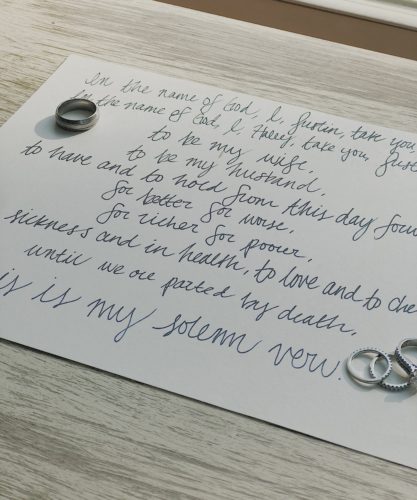 In the name of God, I, Justin, take you
by the name of God, I, Haley, take you, Just
to be my wife,
to be my husband,
to have and to hold from this day forw
for better for worse,
for richer for poorer,
sickness and in health, to love and to che
until we are parted by death.
is is my solemn vow.